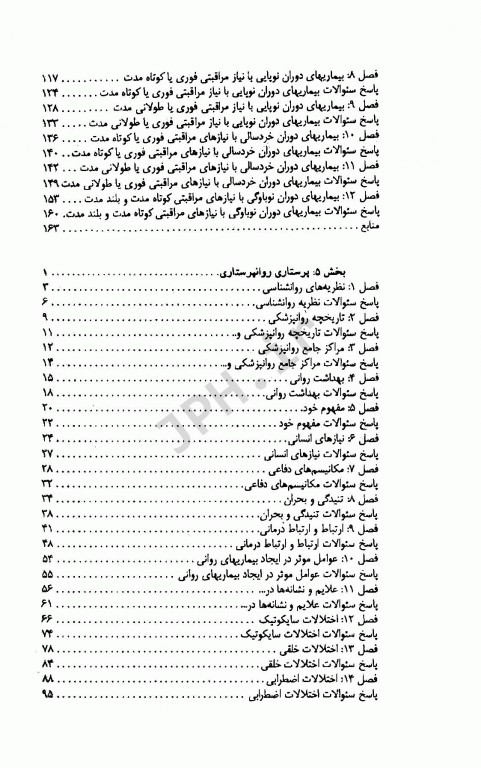 فصل ۸: بیماریهای دوران نوپایی با نیاز مراقبتی فوری یا کوتاه مدت ........... ۱۱۷
پاسخ سئوالات بیماریهای دوران نوپایی با نیاز مراقبتی فوری یا کوتاه مدت ....... ۱۲۴
فصل ۹: بیماریهای دوران نوپایی با نیاز مراقبتی فوری یا طولانی مدت ......... ۱۲۸
پاسخ سئوالات بیماریهای دوران نوپایی با نیاز مراقبتی فوری یا طولانی مدت ..... ۱۳۳
فصل ۱۰: بیماریهای دوران خردسالی با نیازهای مراقبتی فوری یا کوتاه مدت ..... ۱۳۶
پاسخ سئوالات بیماریهای دوران خردسالی با نیازهای مراقبتی فوری یا کوتاه مدت.. ۱۴۰
فصل ۱۱: بیماریهای دوران خردسالی با نیازهای مراقبتی فوری یا طولانی مدت ... ۱۴۲
پاسخ سئوالات بیماریهای دوران خردسالی با نیازهای مراقبتی فوری یا طولانی مدت ۱۴۹
فصل ۱۲: بیماریهای دوران نوباوگی با نیازهای مراقبتی کوتاه مدت و بلند مدت .... ۱۵۳
پاسخ سئوالات بیماریهای دوران نوباوگی با نیازهای مراقبتی کوتاه مدت و بلند مدت. ۱۶۰
منابع ................................................. ۱۶۳
بخش ۵: پرستاری روانپرستاری ................................ ۱
فصل ۱: نظریه‌های روانشناسی ................................ ۳
پاسخ سئوالات نظریه روانشناسی ................................ ۶
فصل ۲: تاریخچه روانپزشکی ................................ ۹
پاسخ سئوالات تاریخچه روانپزشکی و... ........................ ۱۱
فصل ۳: مراکز جامع روانپزشکی ................................ ۱۲
پاسخ سئوالات مراکز جامع روانپزشکی و... ........................ ۱۴
فصل ۴: بهداشت روانی ................................ ۱۵
پاسخ سئوالات بهداشت روانی ................................ ۱۸
فصل ۵: مفهوم خود ................................ ۲۰
پاسخ سئوالات مفهوم خود ................................ ۲۲
فصل ۶: نیازهای انسانی ................................ ۲۴
پاسخ سئوالات نیازهای انسانی ................................ ۲۷
فصل ۷: مکانیسم‌های دفاعی ................................ ۲۸
پاسخ سئوالات مکانیسم‌های دفاعی ................................ ۳۲
فصل ۸: تنیدگی و بحران ................................ ۳۴
پاسخ سئوالات تنیدگی و بحران ................................ ۳۸
فصل ۹: ارتباط و ارتباط درمانی ................................ ۴۱
پاسخ سئوالات ارتباط و ارتباط درمانی ........................ ۴۸
فصل ۱۰: عوامل موثر در ایجاد بیماریهای روانی ........................ ۵۴
پاسخ سئوالات عوامل موثر در ایجاد بیماریهای روانی ................ ۵۵
فصل ۱۱: علایم و نشانه‌ها در... ................................ ۵۶
پاسخ سئوالات علایم و نشانه‌ها در... ........................ ۶۱
فصل ۱۲: اختلالات سایکوتیک ................................ ۶۶
پاسخ سئوالات اختلالات سایکوتیک ................................ ۷۴
فصل ۱۳: اختلالات خلقی ................................ ۷۸
پاسخ سئوالات اختلالات خلقی ................................ ۸۴
فصل ۱۴: اختلالات اضطرابی ................................ ۸۸
پاسخ سئوالات اختلالات اضطرابی ................................ ۹۵
JPH.IR